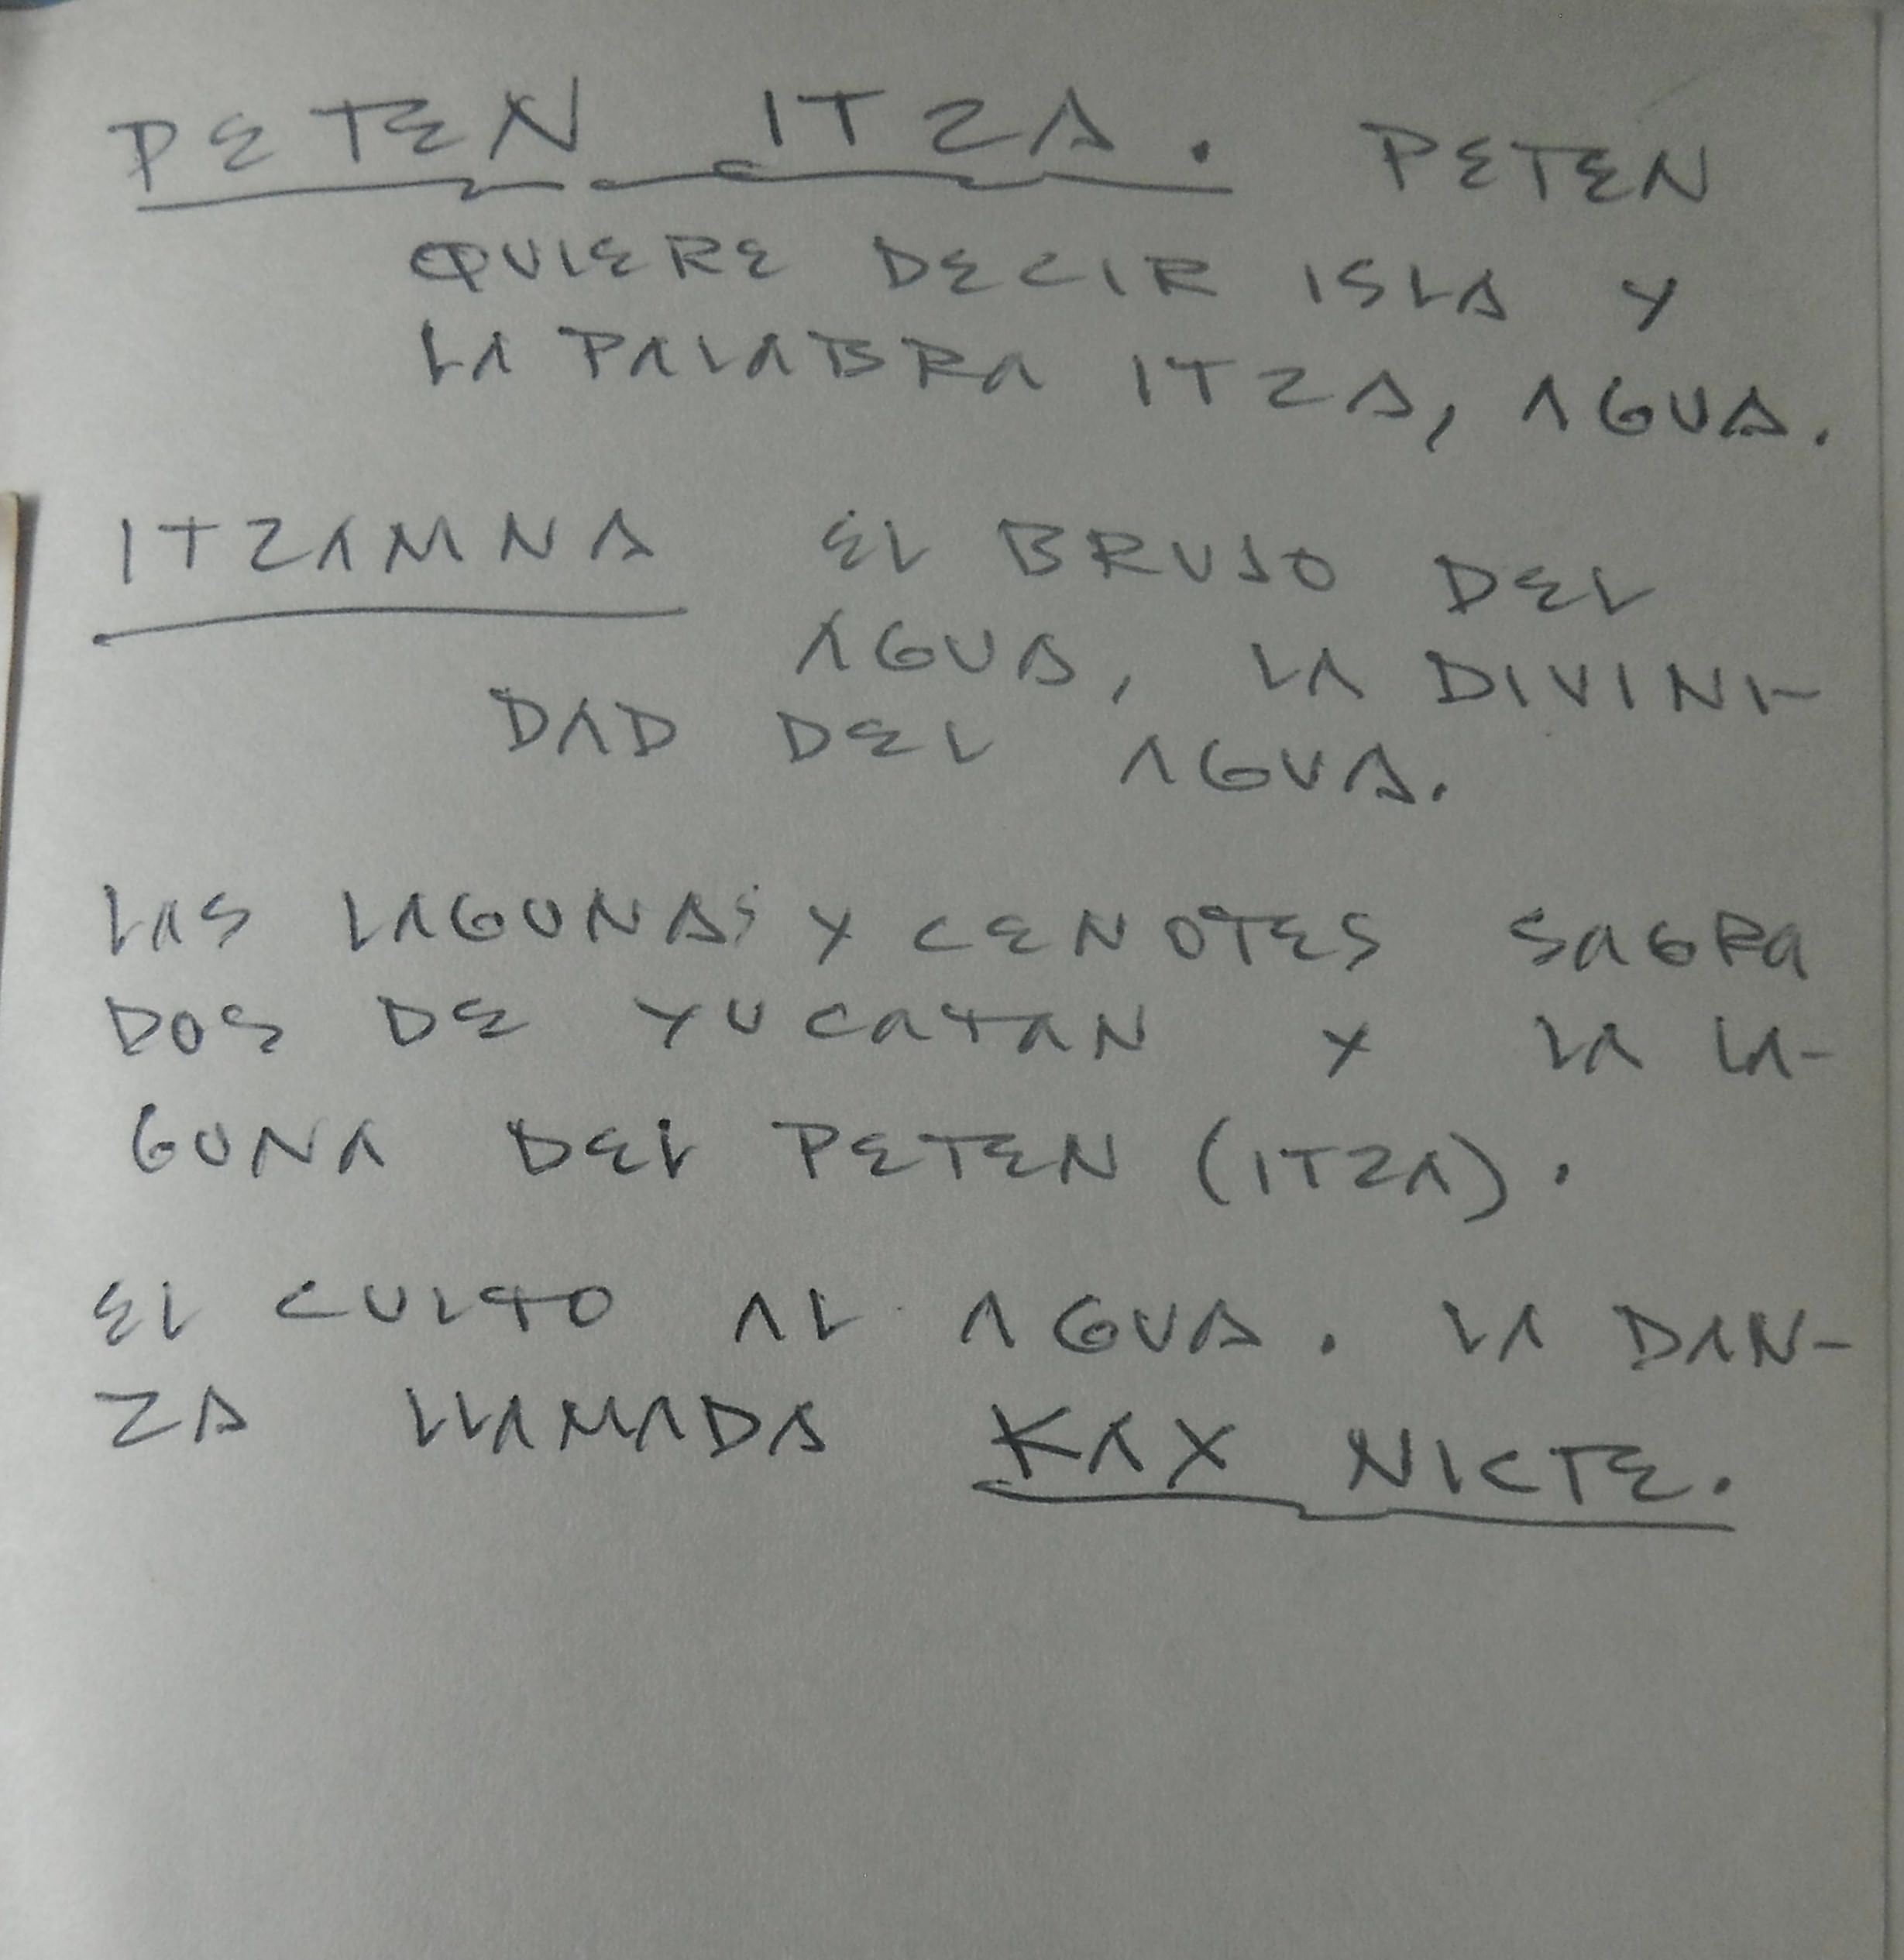 PETEN ITZA. PETEN
QUIERE DECIR ISLA Y
LA PALABRA ITZA, AGUA.
ITZAMNA EL BRUJO DEL
AGUA, LA DIVINI-
DAD DEL AGUA.
LAS LAGUNAS Y CENOTES SAGRA
DOS DE YUCATAN Y LA LA-
GUNA DEL PETEN (ITZA).
EL CULTO AL AGUA. LA DAN-
ZA LLAMADA KAX NICTE.